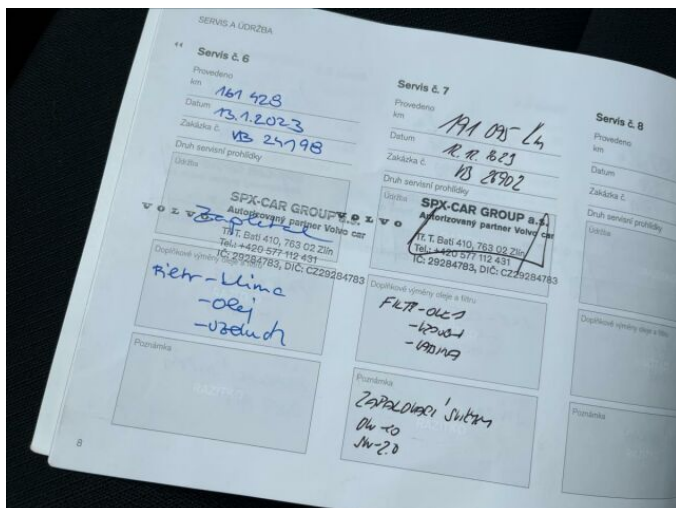 SERVIS A ÚDRŽBA
Servis č. 6
Provedeno
km 161 428
Datum 13.1.2023
Zakázka č. VB 24198
Druh servisní prohlídky
Údržba
SPX-CAR GROUP
VOLVO Autorizovaný partner Volvo car
Tř. T. Bati 410, 763 02 Zlín
Tel.: +420 577 112 431
IČ: 29284783, DIČ: CZ29284783
Doplňkové výměny oleje a filtru
Filtr - klima
- olej
- vzduch
Poznámka
8
Servis č. 7
Provedeno
km 191 095 km
Datum
Zakázka č. VB 26902
Druh servisní prohlídky
Údržba
SPX-CAR GROUP a.s.
VOLVO Autorizovaný partner Volvo car
Tř. T. Bati 410, 763 02 Zlín
Tel.: +420 577 112 431
IČ: 29284783, DIČ: CZ29284783
Doplňkové výměny oleje a filtru
FILTR - OLEJ
- VZDUCH
- KABINA
Poznámka
ZAPALOVACÍ SVÍČKY
Servis č. 8
Provedeno
km
Datum
Zakázka č.
Druh servisní prohlídky
Údržba
Doplňkové výměny oleje a filtru
Poznámka